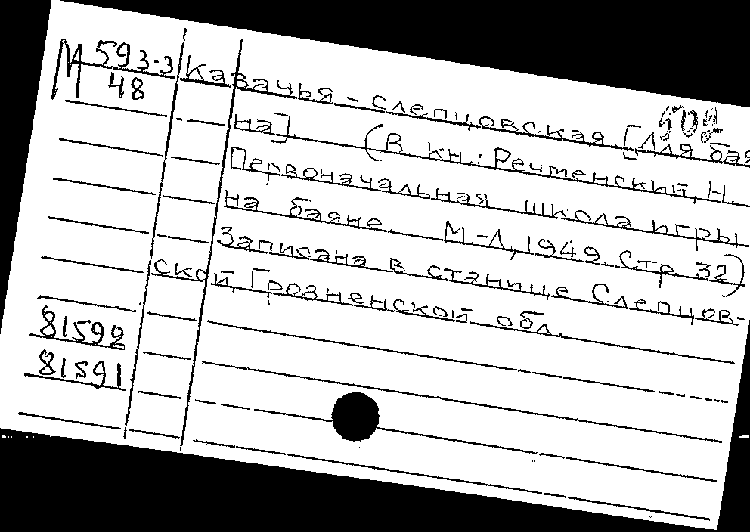 М 593-3
48
Казачья - слепцовская [Для бая
на]. (В кн.: Речменский, Н.
Первоначальная школа игры
на баяне. М-Л, 1949. Стр 32)
Записана в станице Слепцов-
ской, Грозненской обл.
81592
81591